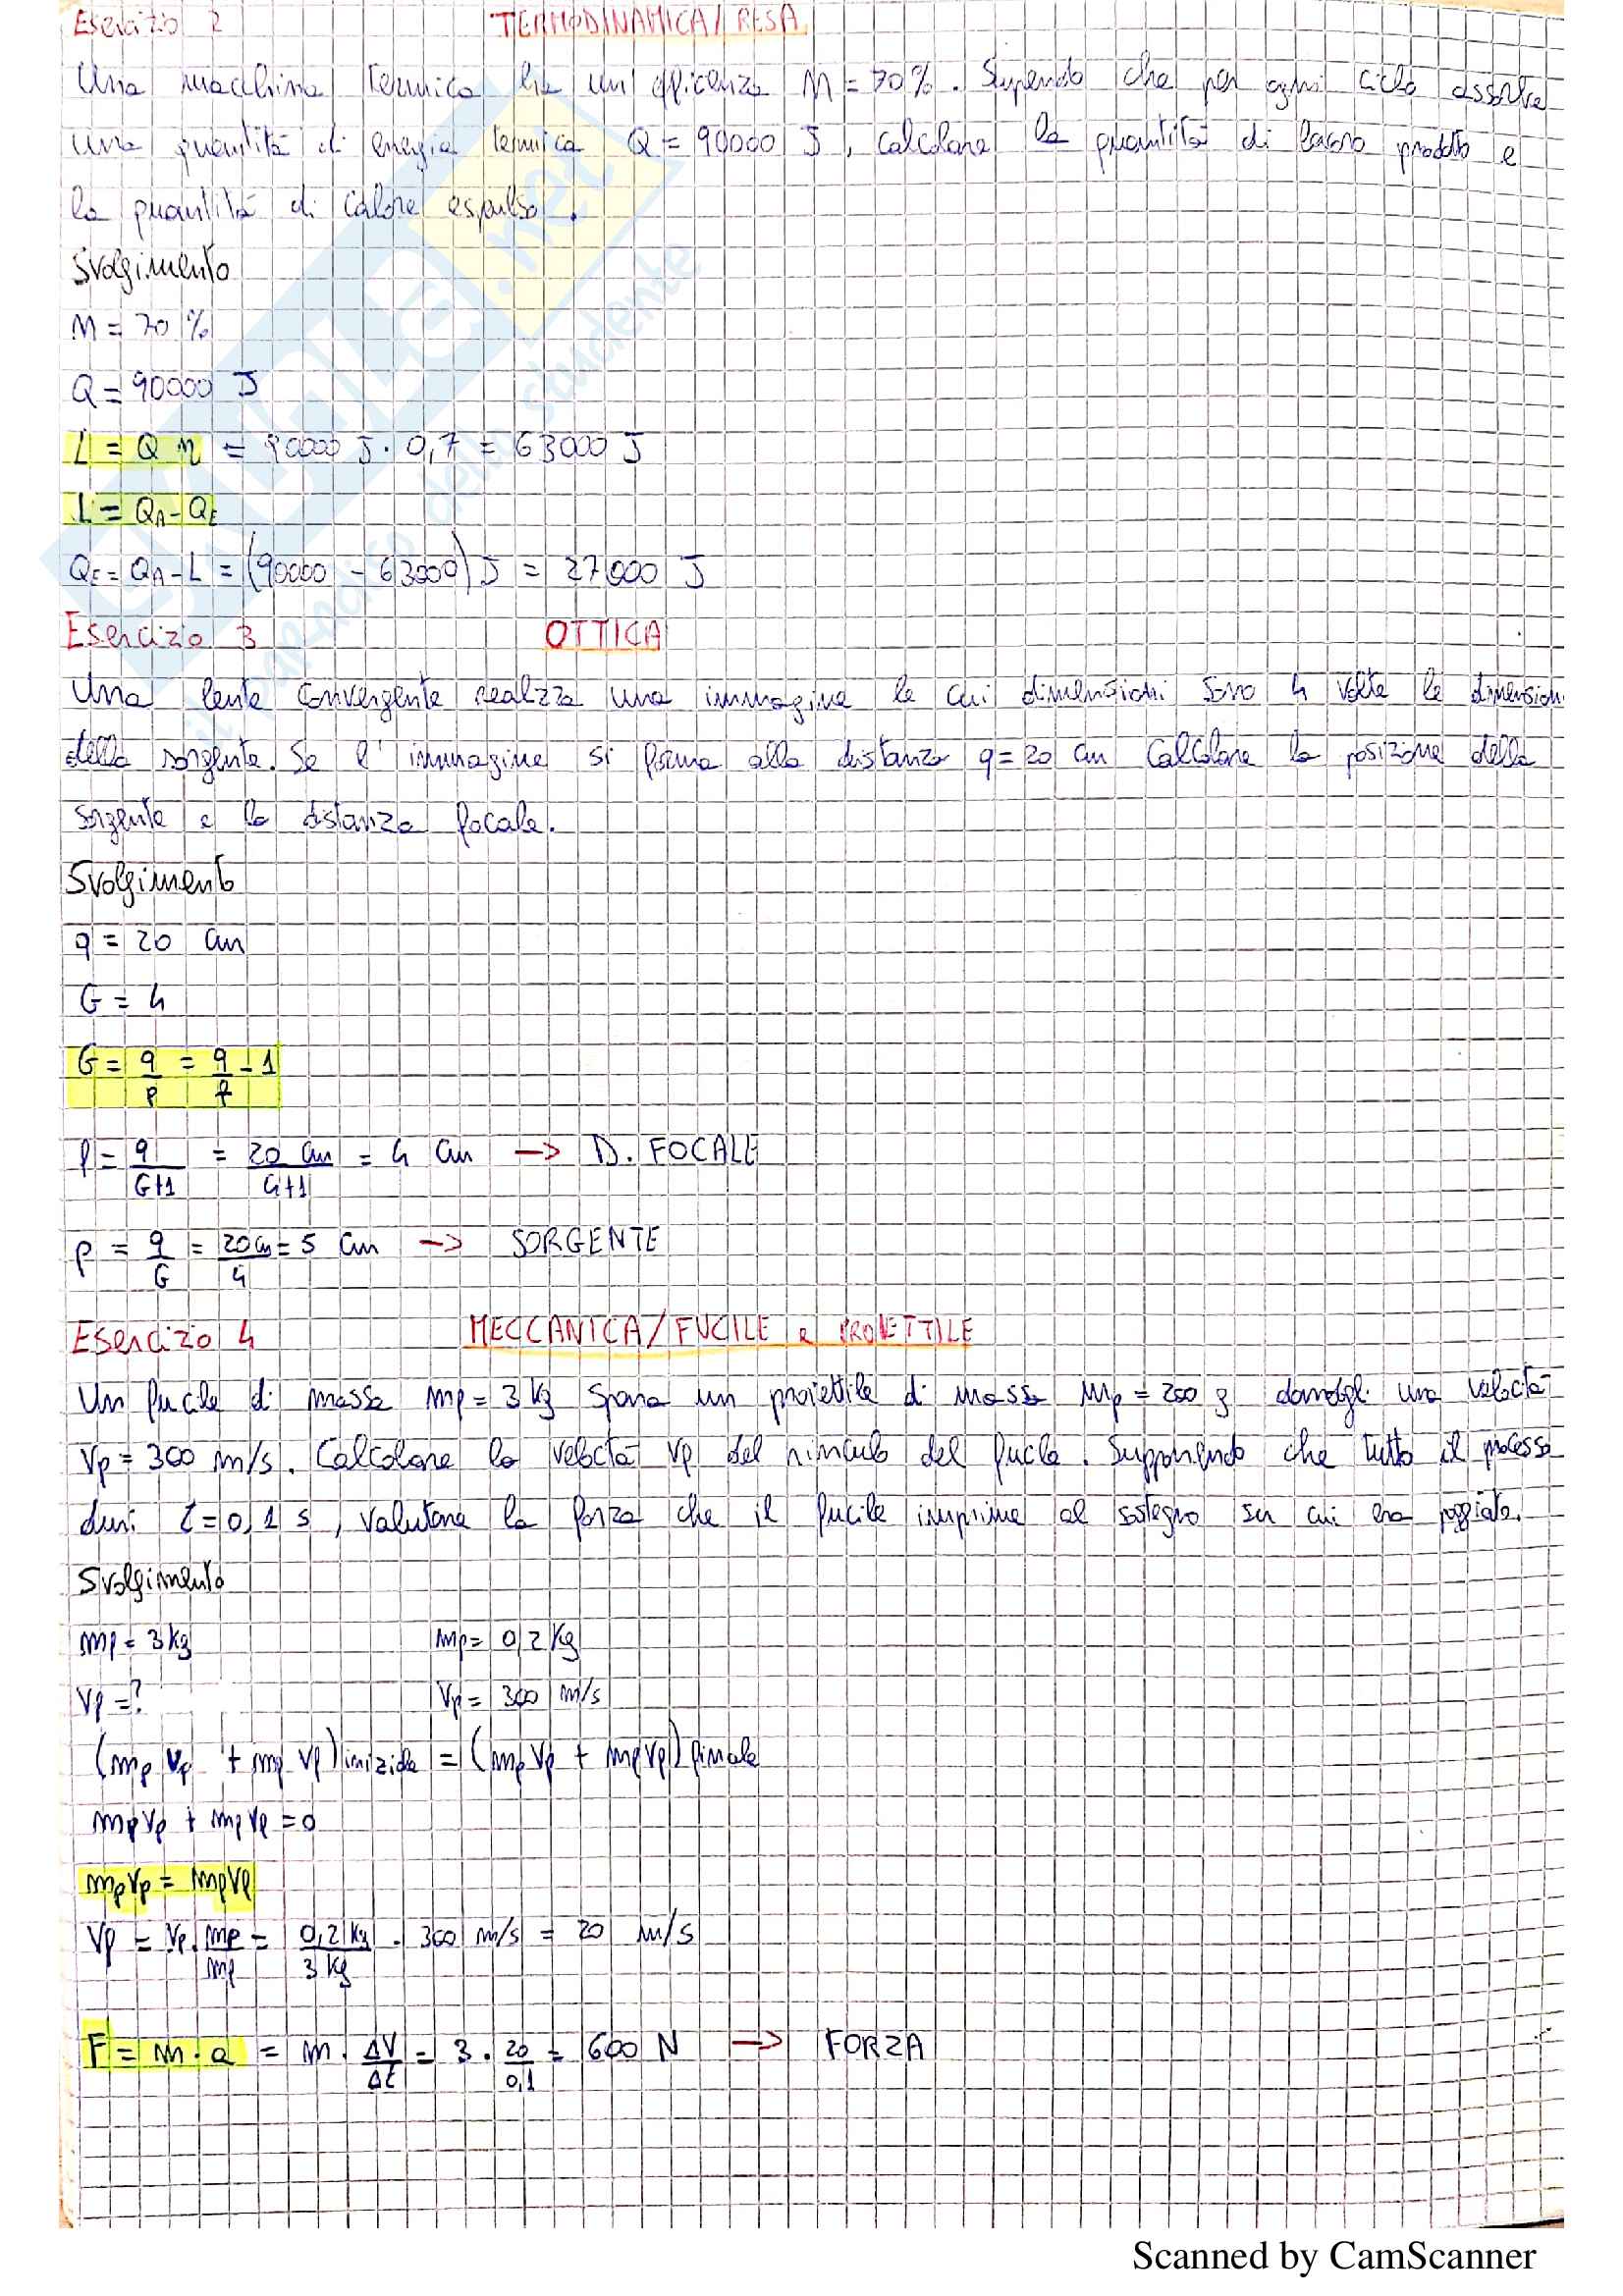 Esercizio 2 TERMODINAMICA/RESA
Una macchina termica ha un'efficienza η = 70%. Sapendo che per ogni ciclo assorbe
una quantità di energia termica Q = 90000 J, calcolare la quantità di lavoro prodotto e
la quantità di calore espulso.
Svolgimento
η = 70 %
Q = 90000 J
L = Q η = 90000 J · 0,7 = 63000 J
L = QA - QE
QE = QA - L = (90000 - 63000) J = 27000 J
Esercizio 3 OTTICA
Una lente convergente realizza una immagine le cui dimensioni sono 4 volte le dimensioni
della sorgente. Se l'immagine si forma alla distanza q = 20 cm calcolare la posizione della
sorgente e la distanza focale.
Svolgimento
q = 20 cm
G = 4
G = q/p = q/f - 1
f = q/(G+1) = 20 cm/(4+1) = 4 cm -> D. FOCALE
p = q/G = 20 cm/4 = 5 cm -> SORGENTE
Esercizio 4 MECCANICA/FUCILE e PROIETTILE
Un fucile di massa mf = 3 kg spara un proiettile di massa mp = 200 g dandogli una velocità
Vp = 300 m/s. Calcolare la velocità Vf del rinculo del fucile. Supponendo che tutto il processo
duri t = 0,1 s, valutare la forza che il fucile imprime al sostegno su cui era poggiato.
Svolgimento
mf = 3 kg mp = 0,2 kg
Vf = ? Vp = 300 m/s
(mp Vp + mf Vf) iniziale = (mp Vp + mf Vf) finale
mp Vp + mf Vf = 0
mp Vp = mf Vf
Vf = Vp · mp/mf = 0,2 kg/3 kg · 300 m/s = 20 m/s
F = m · a = m · ΔV/Δt = 3 · 20/0,1 = 600 N -> FORZA
Scanned by CamScanner